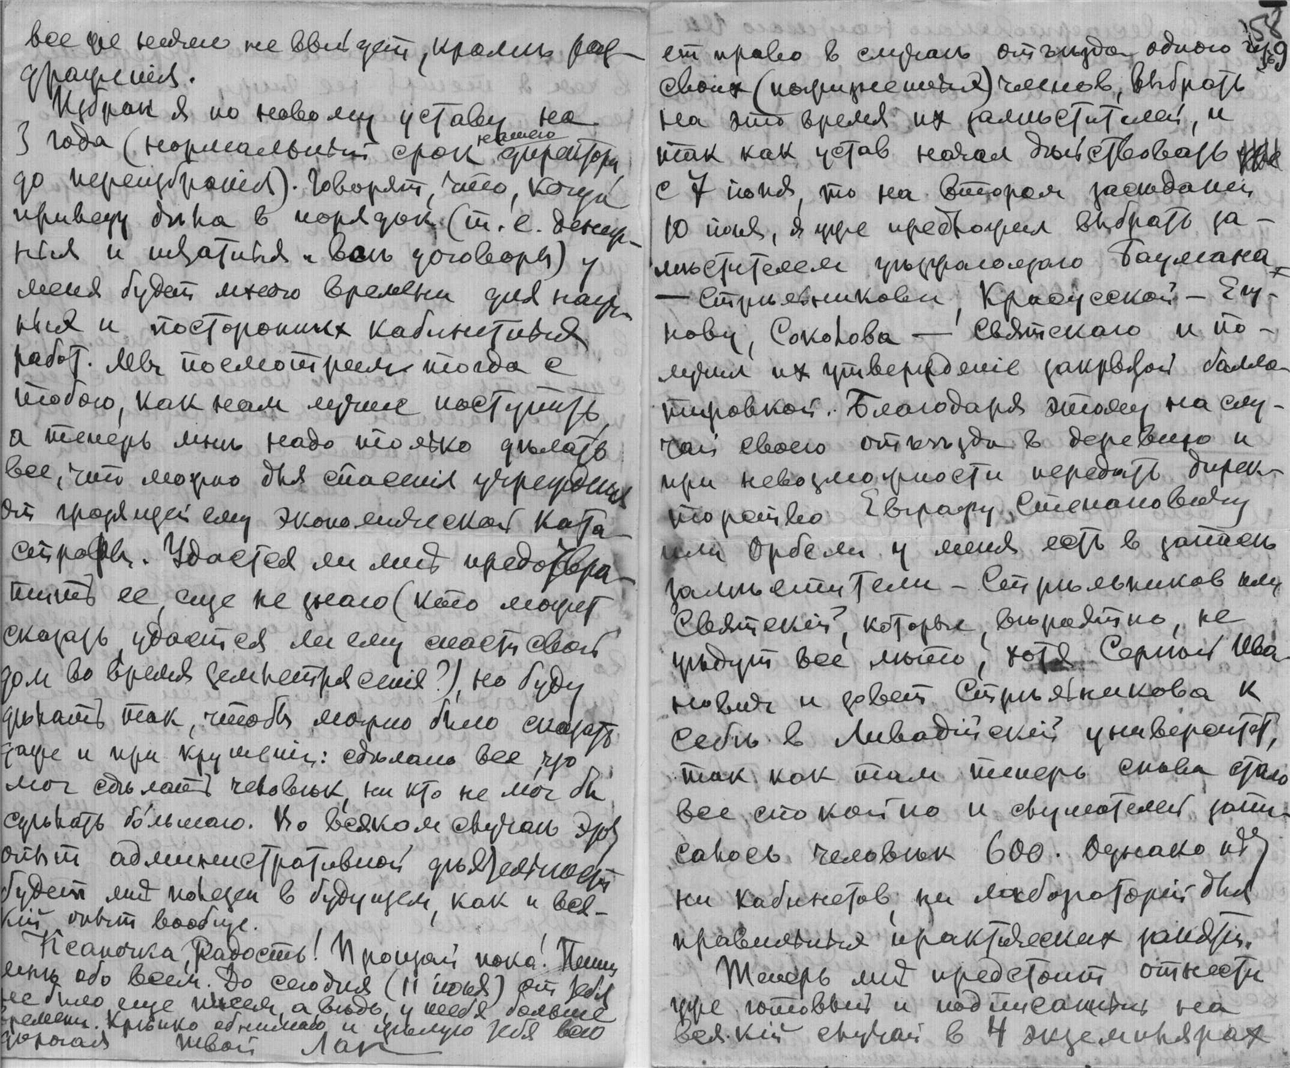 все же ничего не выйдет, кроме раз-
дражения.
Избран я по новому уставу на
3 года (нормальный срок нашего директора
до переизбрания). Говорят, что, когда
приведу дела в порядок (т. е. денеж-
ныя и штатныя и все договоры) у
меня будет много времени для науч-
ных и посторонних кабинетных
работ. Мы посмотрим тогда с
тобою, как нам лучше поступить,
а теперь мнѣ надо только дѣлать
все, что можно для спасенія учрежденія
от грозящей ему экономической ката-
строфы. Удастся ли мнѣ предотвра-
тить ее, еще не знаю (кто может
сказать, удастся ли ему спасти свой
дом во время землетрясенія?), но буду
дѣлать так, чтобы можно было сказать
даже и при крушеніи: сдѣлано все, что
мог сдѣлать человѣк, никто не мог бы
сдѣлать большаго. Во всяком случаѣ этот
опыт административной дѣятельности
будет мнѣ полезен в будущем, как и вся-
кій опыт вообще.
Ксаночка, Радость! Прощай пока! Пиши
мнѣ обо всем. До сегодня (11 іюня) от тебя
не было еще писем, а вѣдь у тебя больше
времени. Крѣпко обнимаю и цѣлую тебя всю
дорогая твой Лак
158
ет право в случаѣ отъѣзда одного из
своих членов, выбрать
на это время их замѣстителей, и
так как устав начал дѣйствовать уже
с 7 іюня, то на втором засѣданіи
10 іюня, я уже предложил выбрать за-
мѣстителем уѣзжающаго Баумана
— Стрѣльникова, —
Соколова — Святскаго и по-
лучил их утвержденіе закрытой балло-
тировкой. Благодаря этому на слу-
чай своего отъѣзда в деревню и
при невозможности передать дирек-
торство Евграфу Степановичу
или Орбели у меня есть в запасѣ
замѣстители — Стрѣльников или
Святскій, которые, вѣроятно, не
уѣдут все лѣто, хотя Сергѣй Ива-
нович и зовет Стрѣльникова к
себѣ в Ливадійскій университет,
так как там теперь снова стало
все спокойно и слушателей запи-
салось человѣк 600. Однако нѣт
ни кабинетов, ни лабораторій для
правильных практических занятій.
Теперь мнѣ предстоит отнести
уже готовый и подписанный на
всякій случай в 4 экземплярах